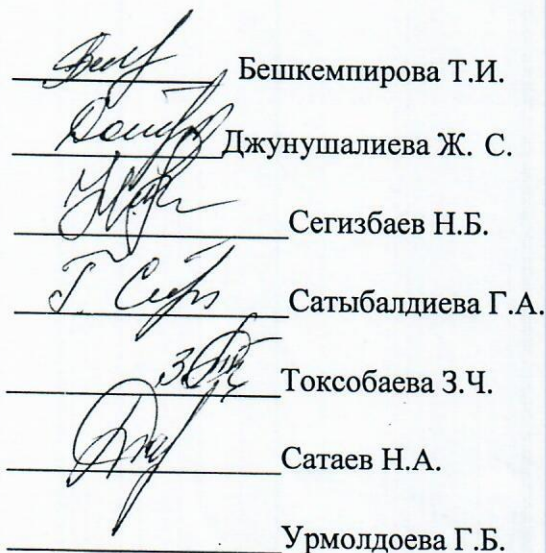 Бешкемпирова Т.И.
Джунушалиева Ж. С.
Сегизбаев Н.Б.
Сатыбалдиева Г.А.
Токсобаева З.Ч.
Сатаев Н.А.
Урмолдоева Г.Б.